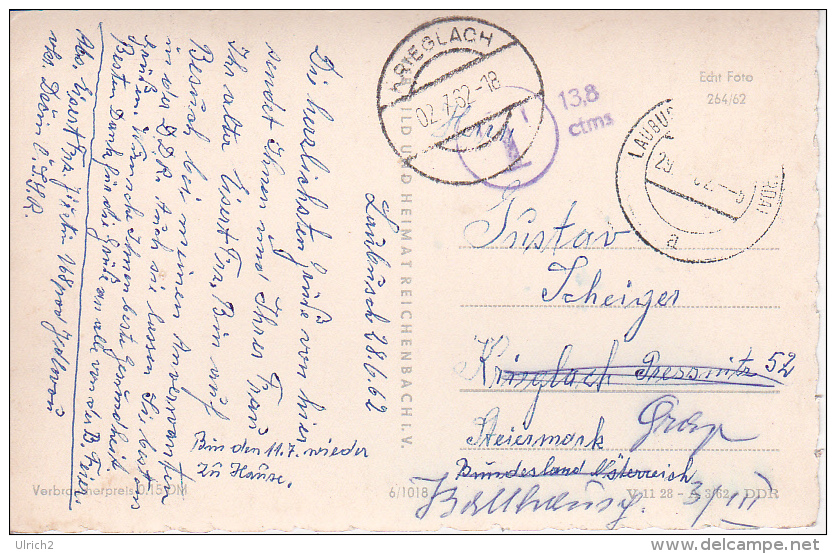 Laubusch 28.6.62
Die herzlichsten Grüße von hier
sendet Ihnen und Ihrer Frau
Ihr alter Eisert Frz. Bin auf
Besuch bei meinen Anverwanten
in der DDR. Auch sie lassen Sie bestens
Grüßen. Wünsche Ihnen beste Gesundheit
Besten Dank für die Grüße an alle von der B. Feier.
Abs. Eisert Frz.
Bin den 11.7. wieder
zu Hause.
Verbraucherpreis 0,15 DM
BILD UND HEIMAT REICHENBACH I. V.
6/1018
KRIEGLACH
02.7.62-18
T
13,8
ctms
Echt Foto
264/62
Herrn
Gustav
Scheiger
Krieglach Pressnitz 52
Steiermark Graz
Bundesland Österreich
3/III
V 11 28 – A 3/62 – DDR
Ulrich2
© www.delcampe.net